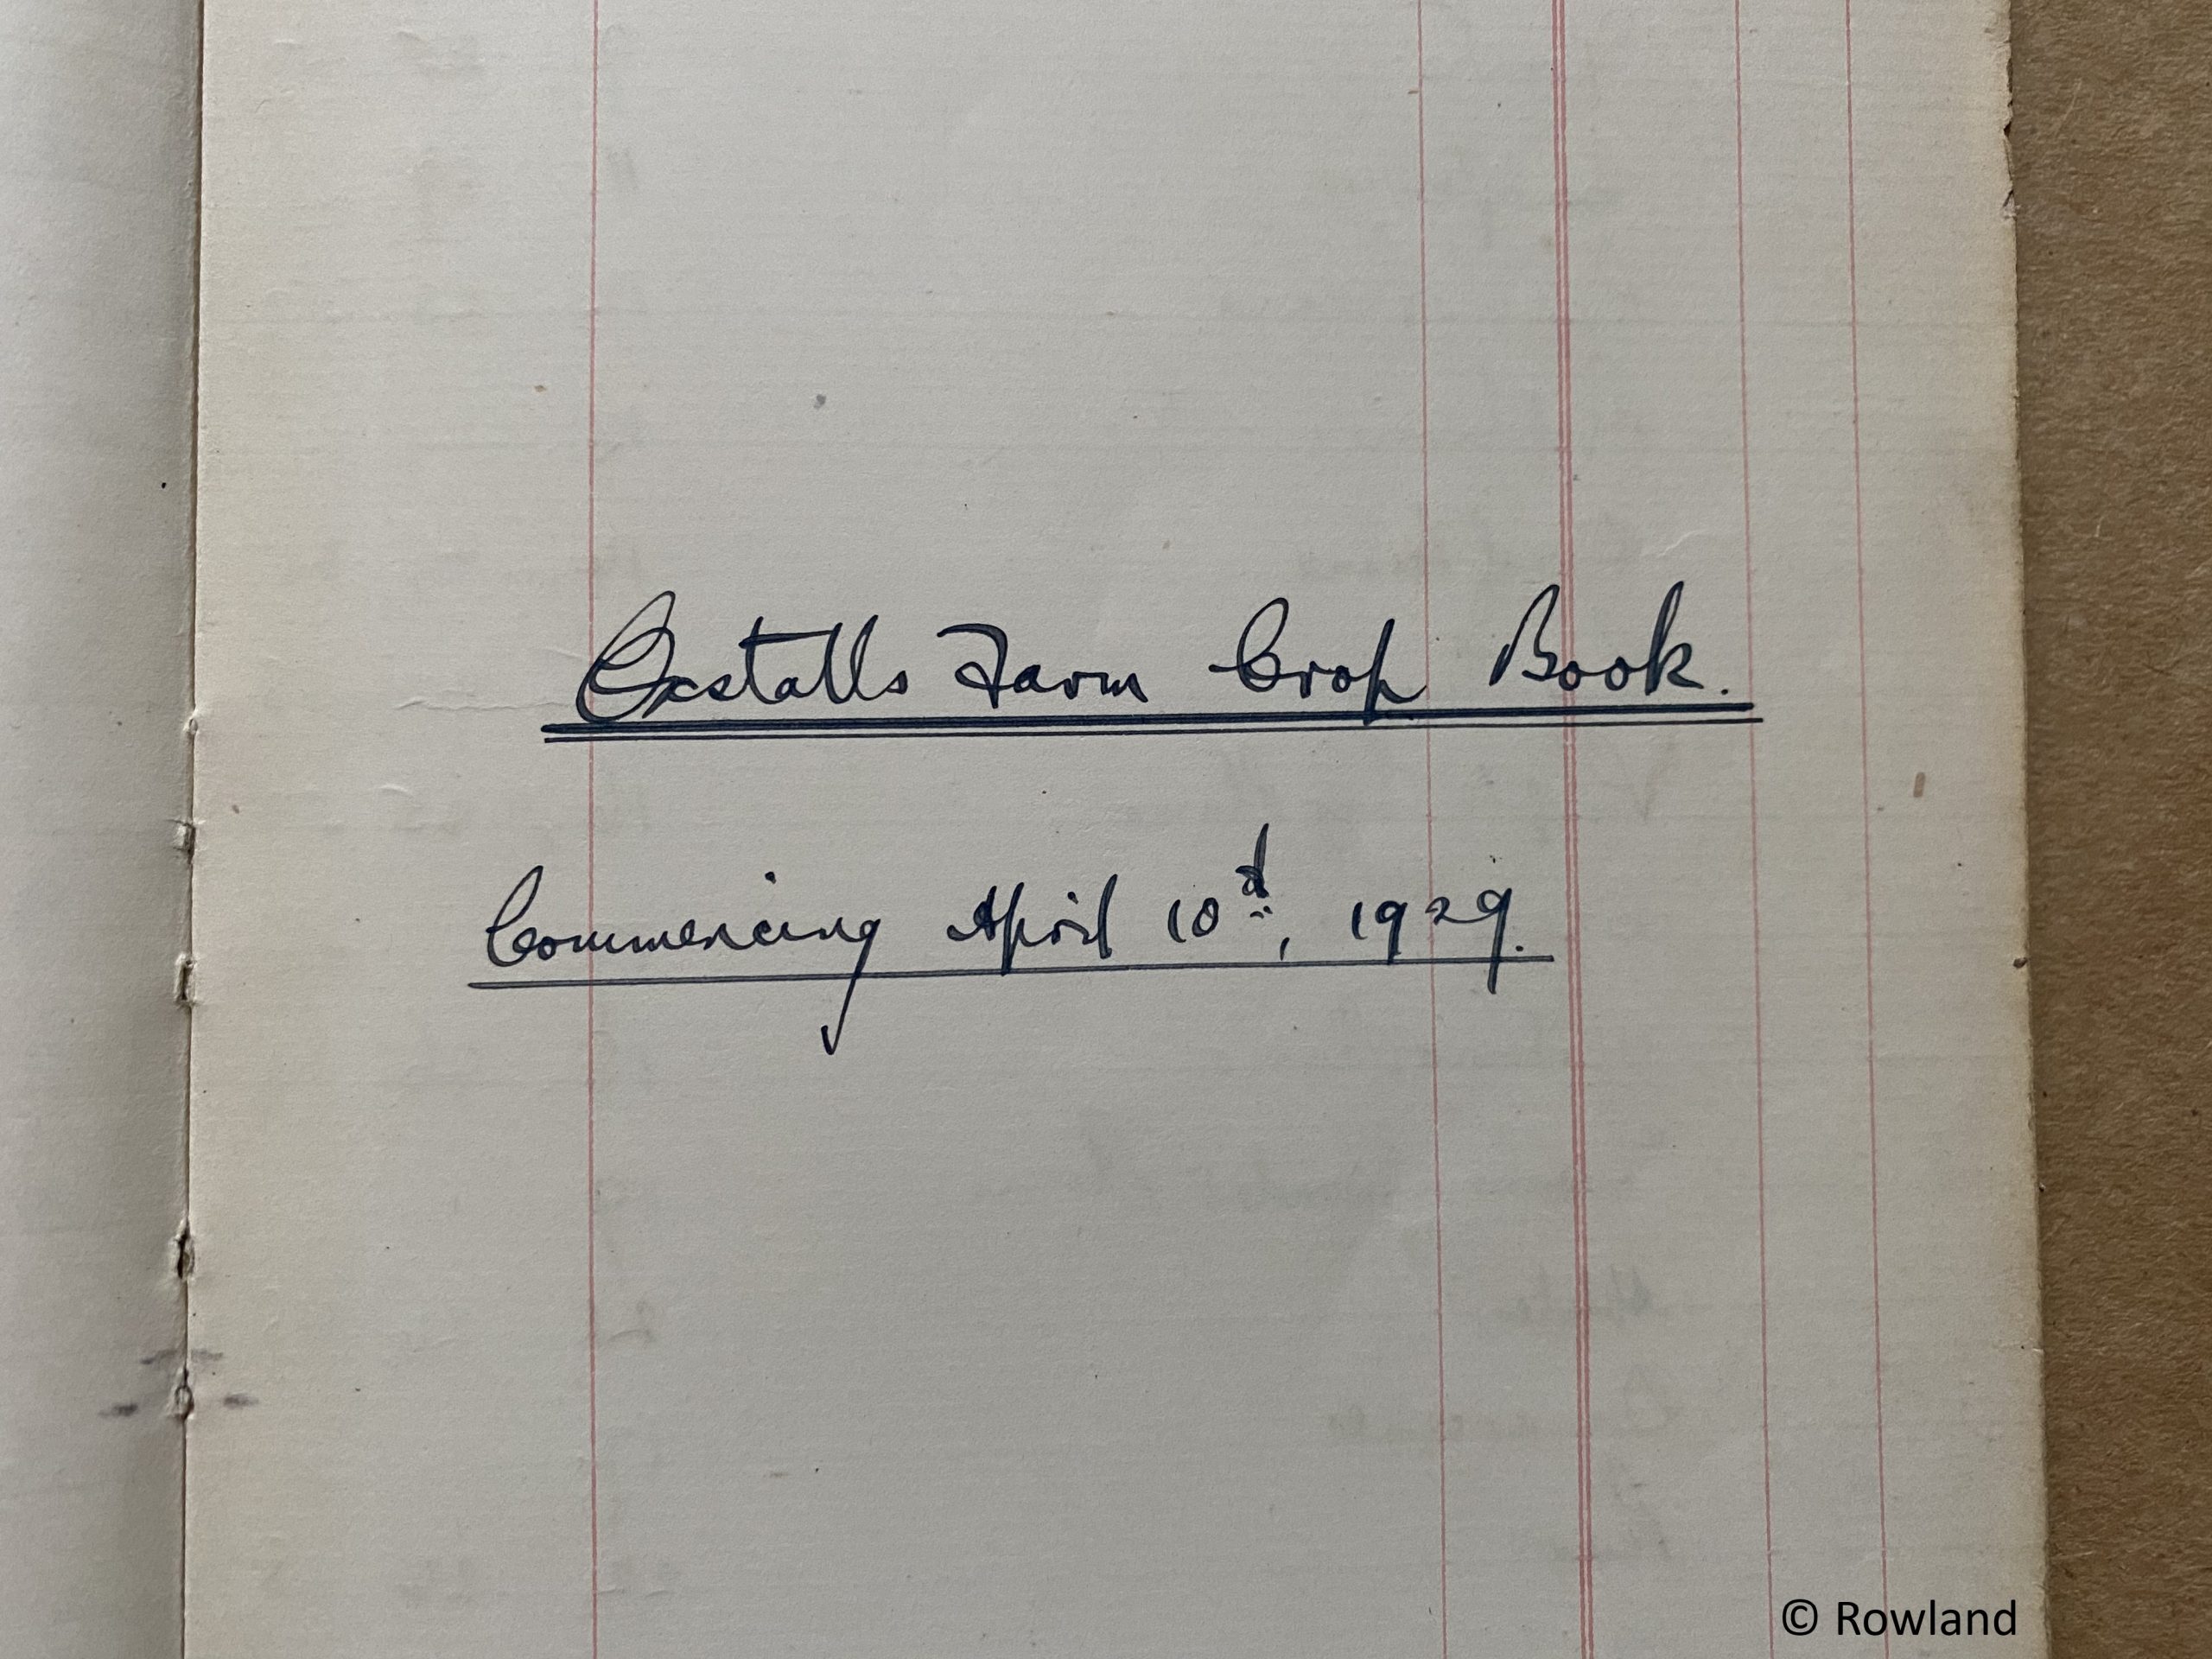 Oxstalls Farm Crop Book.
Commencing April 10th, 1929.
© Rowland